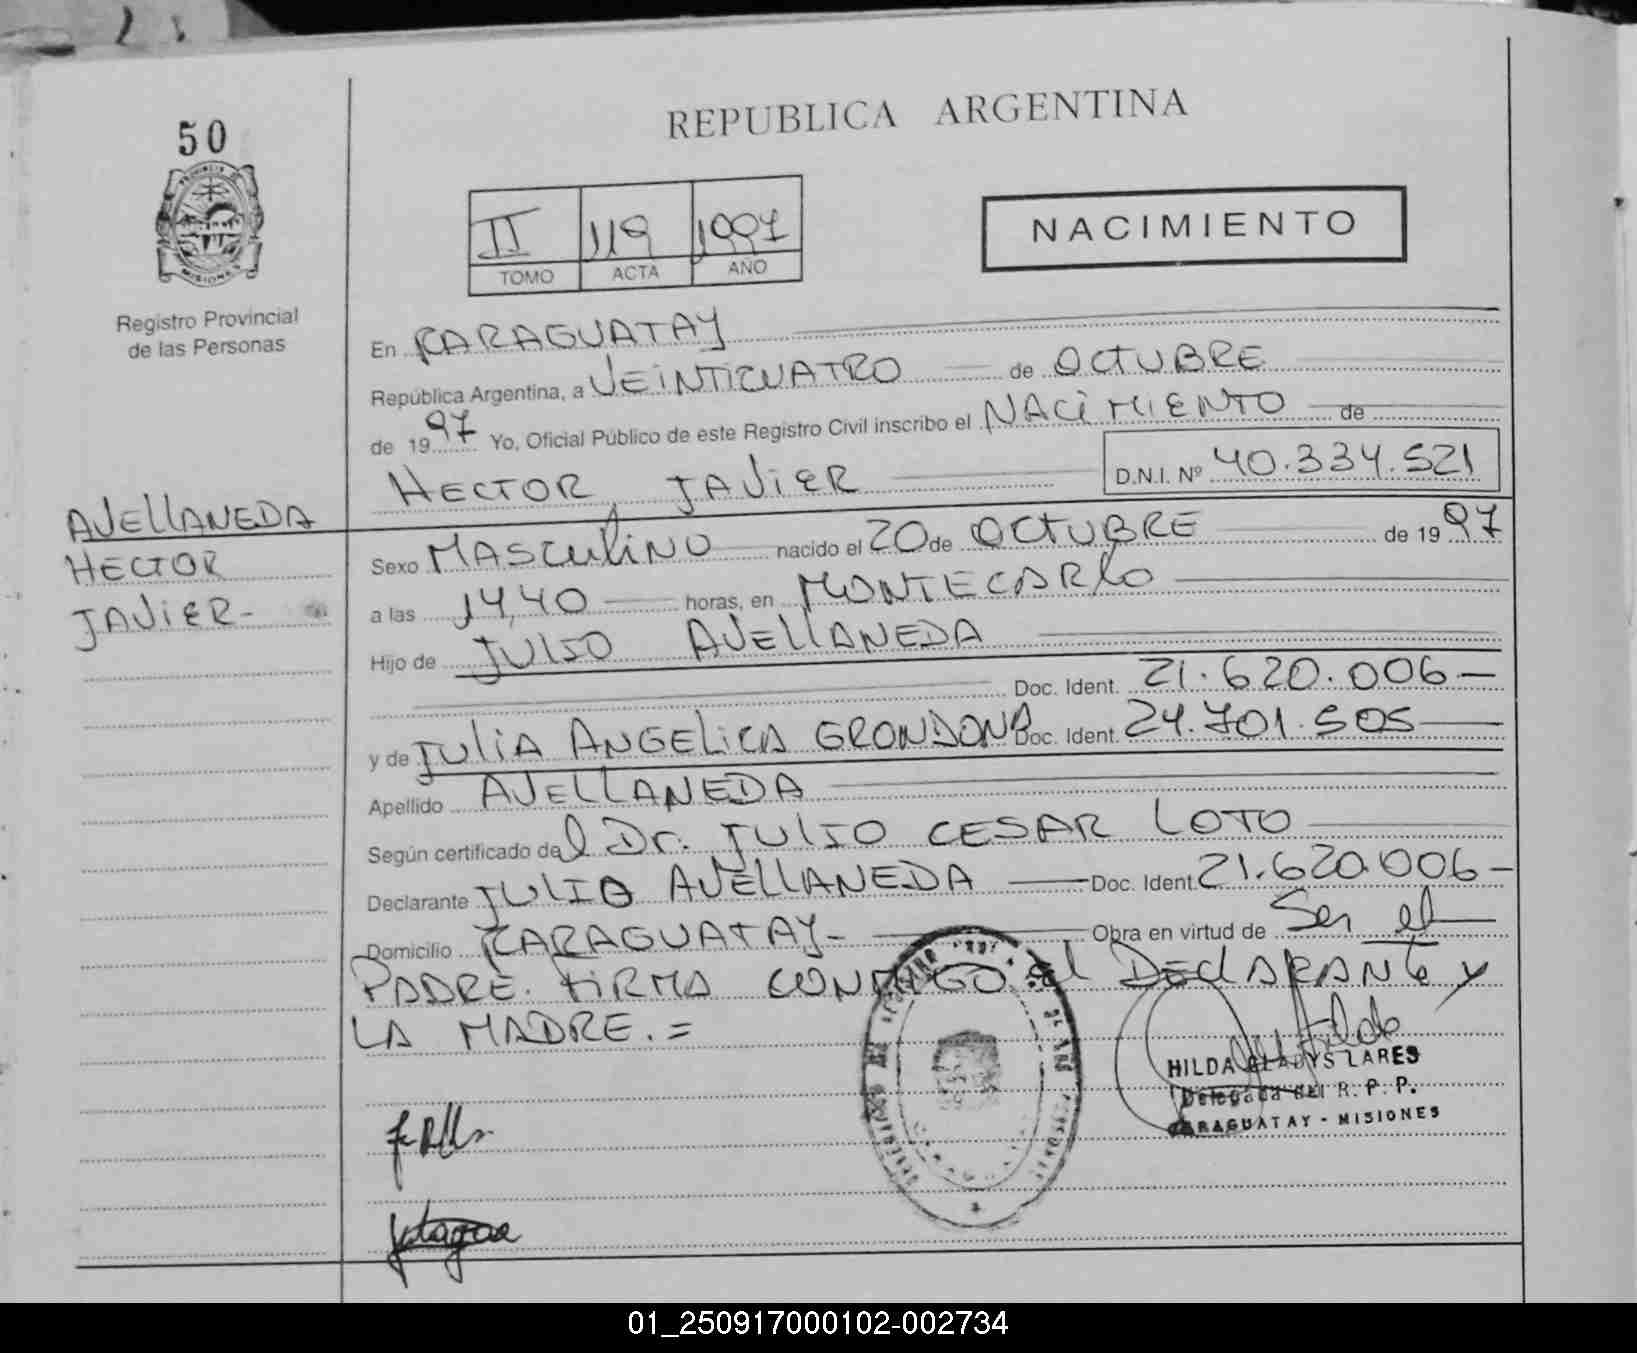 50
PROVINCIA DE
MISIONES
Registro Provincial
de las Personas
AVELLANEDA
HECTOR
JAVIER-
REPUBLICA ARGENTINA
II 119 1997
TOMO ACTA AÑO
NACIMIENTO
En CARAGUATAY
República Argentina, a VEINTICUATRO de OCTUBRE
de 1997 Yo, Oficial Público de este Registro Civil inscribo el NACIMIENTO de
HECTOR JAVIER D.N.I. Nº 40.334.521
Sexo MASCULINO nacido el 20 de OCTUBRE de 1997
a las 14,40 horas, en MONTECARLO
Hijo de JULIO AVELLANEDA
Doc. Ident. 21.620.006-
y de JULIA ANGELICA GRONDONA Doc. Ident. 24.701.505
Apellido AVELLANEDA
Según certificado del Dr. JULIO CESAR LOTO
Declarante JULIO AVELLANEDA Doc. Ident. 21.620.006-
Domicilio CARAGUATAY- Obra en virtud de Ser el
PADRE. FIRMA CONMIGO el DECLARANTE y
LA MADRE.=
HILDA GLADYS LARES
Delegada del R. P. P.
CARAGUATAY - MISIONES
01_250917000102-002734